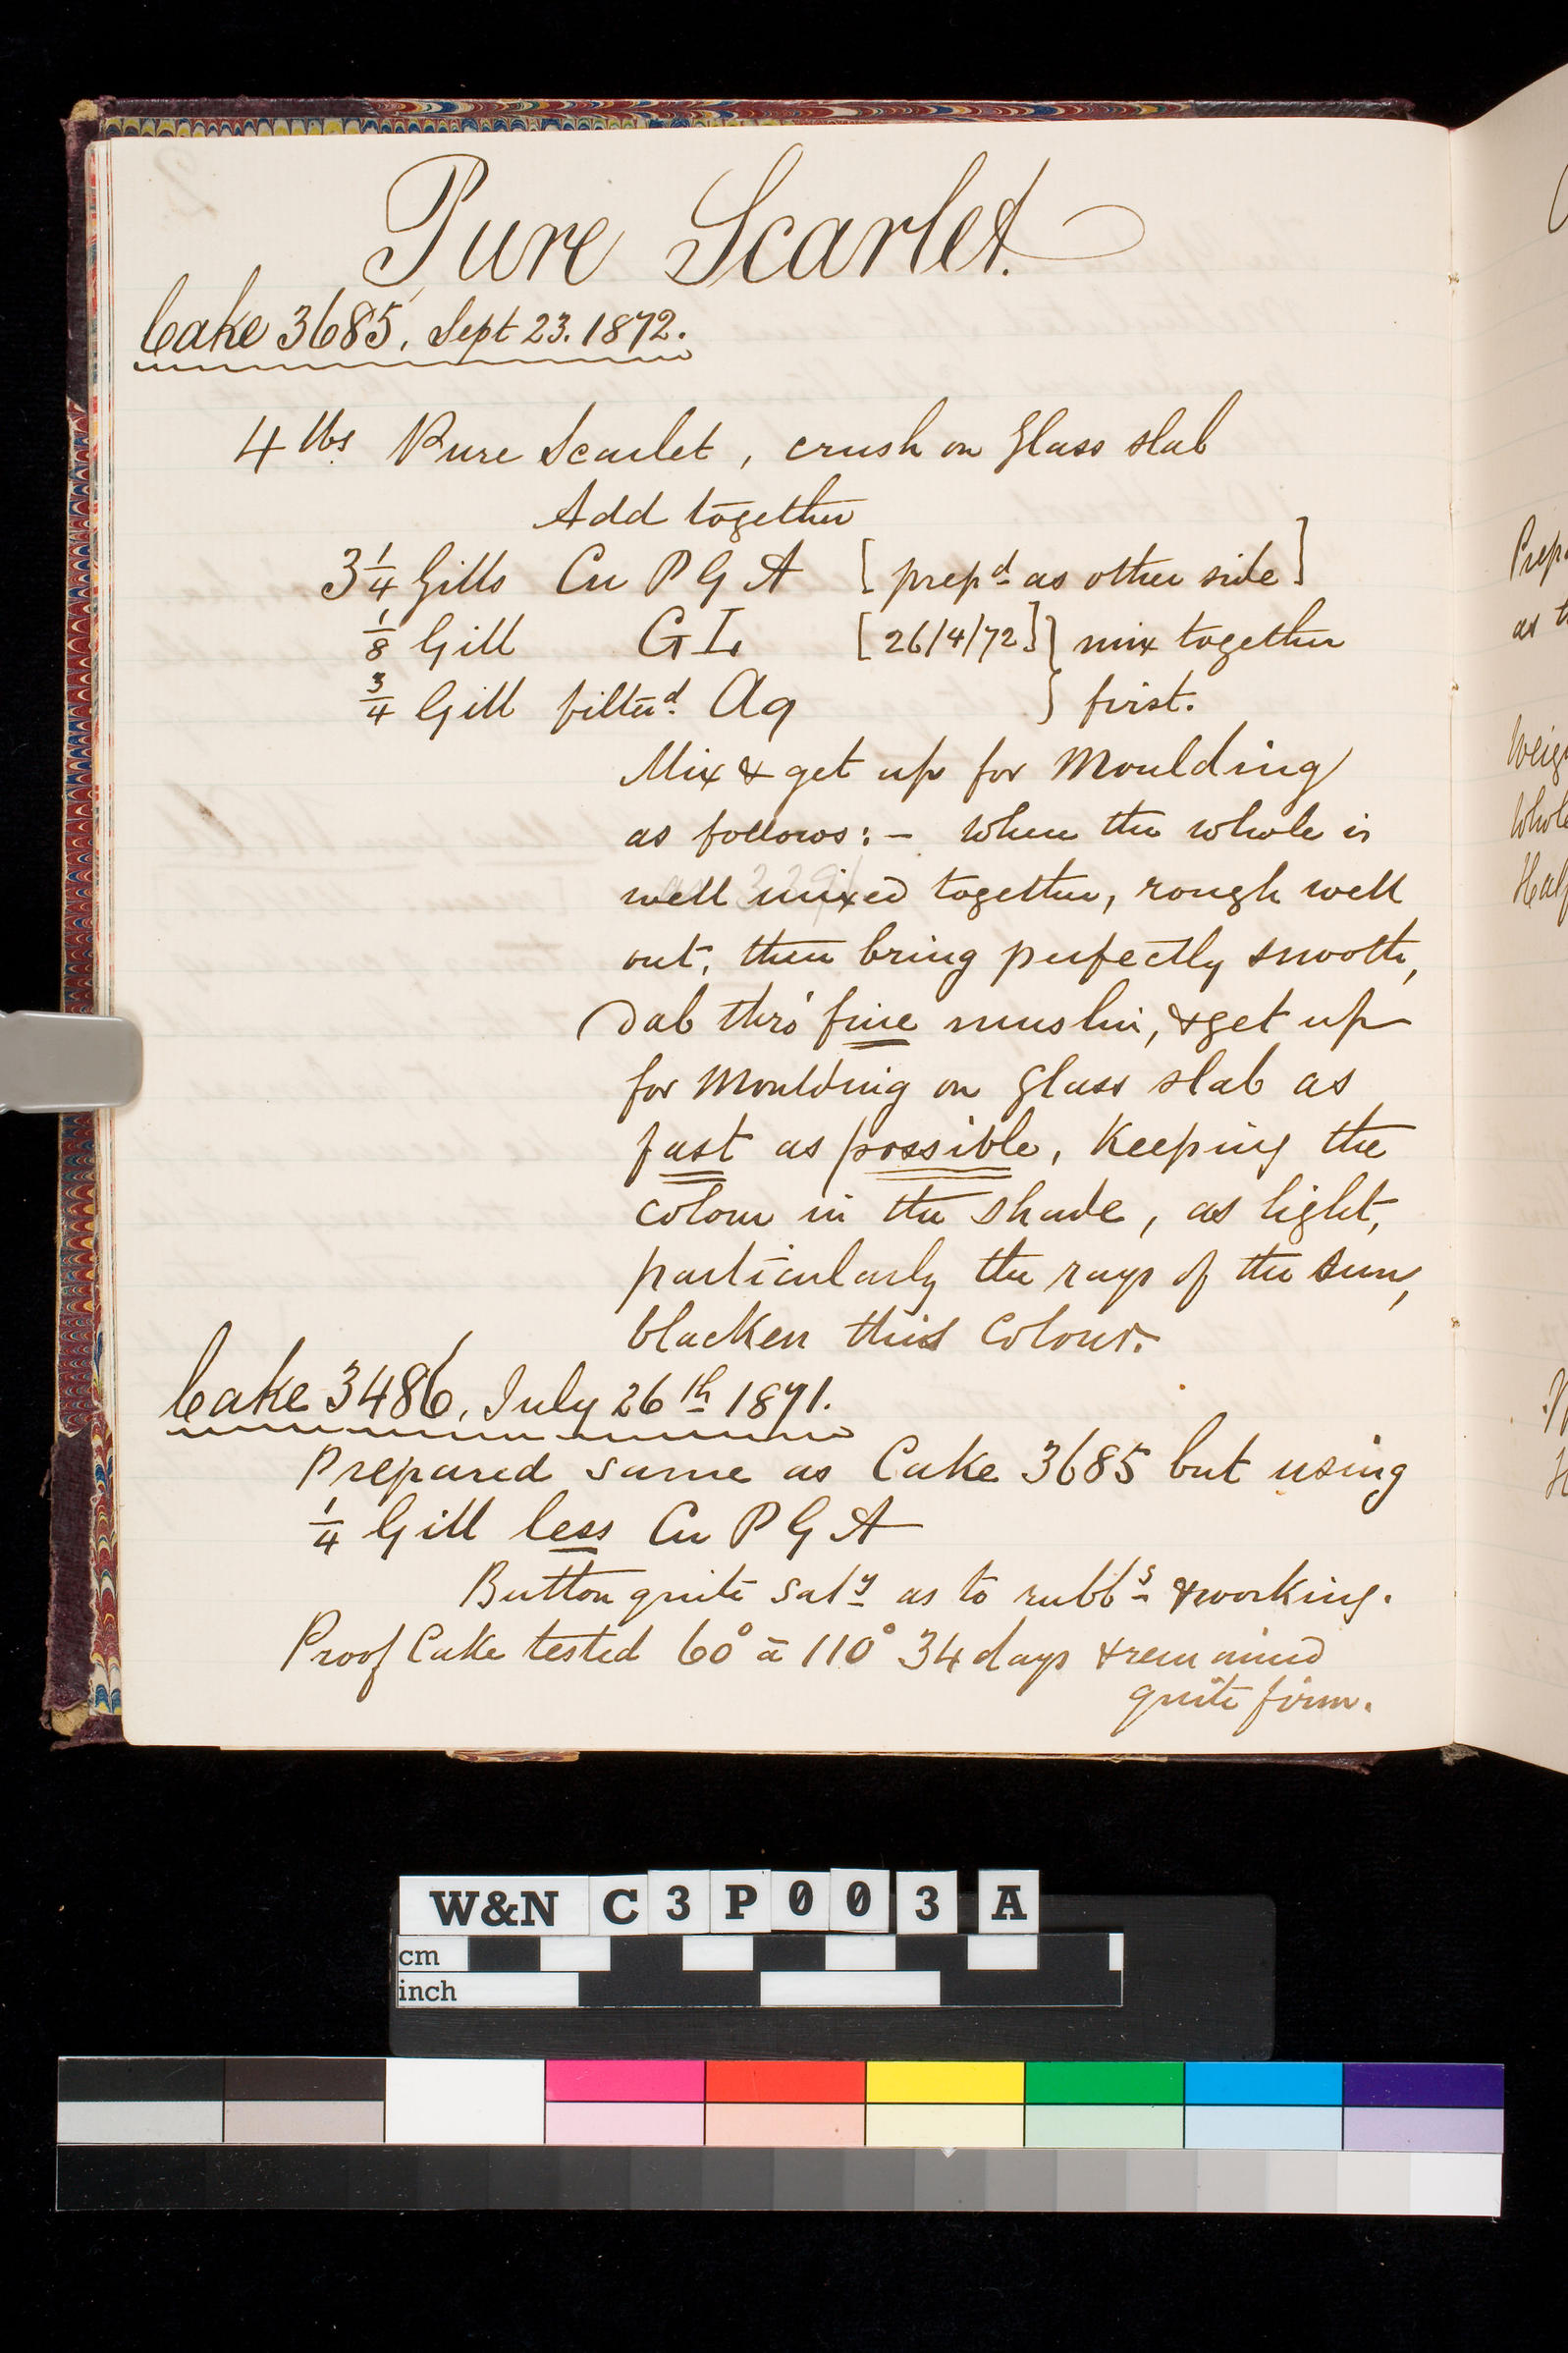 Pure Scarlet.
Cake 3685, Sept 23. 1872.
4 lbs Pure Scarlet, crush on Glass slab
Add together
3 1/4 Gills Cu P G A [prepd as other side]
1/8 Gill G L [26/4/72]} mix together
3/4 Gill filterd. Aq } first.
Mix & get up for Moulding
as follows:- When the whole is
well mixed together, rough well
out, then bring perfectly smooth,
Dab thro' fine muslin, & get up
for Moulding on Glass slab as
fast as possible, Keeping the
colour in the shade, as light,
particularly the rays of the Sun,
blacken this Colour.
Cake 3486, July 26th 1871.
Prepared same as Cake 3685 but using
1/4 Gill less Cu P G A
Button quite saty as to rubbs & working.
Proof Cake tested 60° à 110° 34 days & remained
quite firm.
Prep
as
Weig
Whole
Half
W&N C3P003A
cm
inch